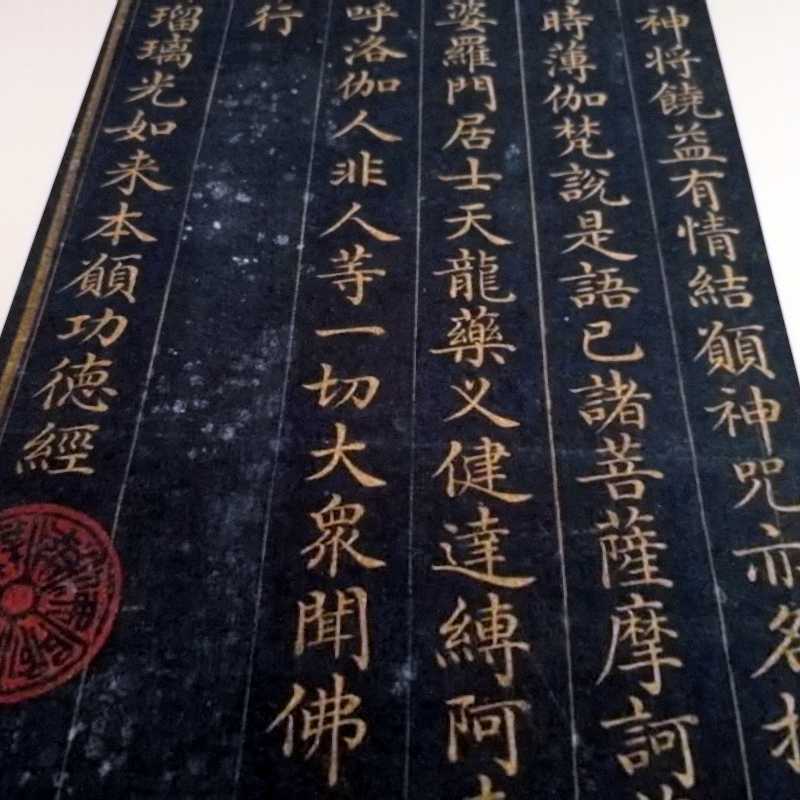 神将饒益有情結願神咒亦名
時薄伽梵說是語已諸菩薩摩訶
婆羅門居士天龍藥义健達縛阿
呼洛伽人非人䒭一切大眾聞佛
行
瑠璃光如来本願功德經